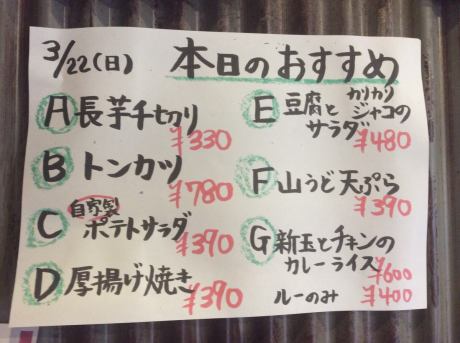 3/22(日) 本日のおすすめ
A 長芋千切り
¥330
B トンカツ
¥780
C 自家製
ポテトサラダ
¥390
D 厚揚げ焼き
¥390
E 豆腐とカリカリ
ジャコの
サラダ
¥480
F 山うど天ぷら
¥390
G 新玉とチキンの
カレーライス
¥600
ルーのみ ¥400